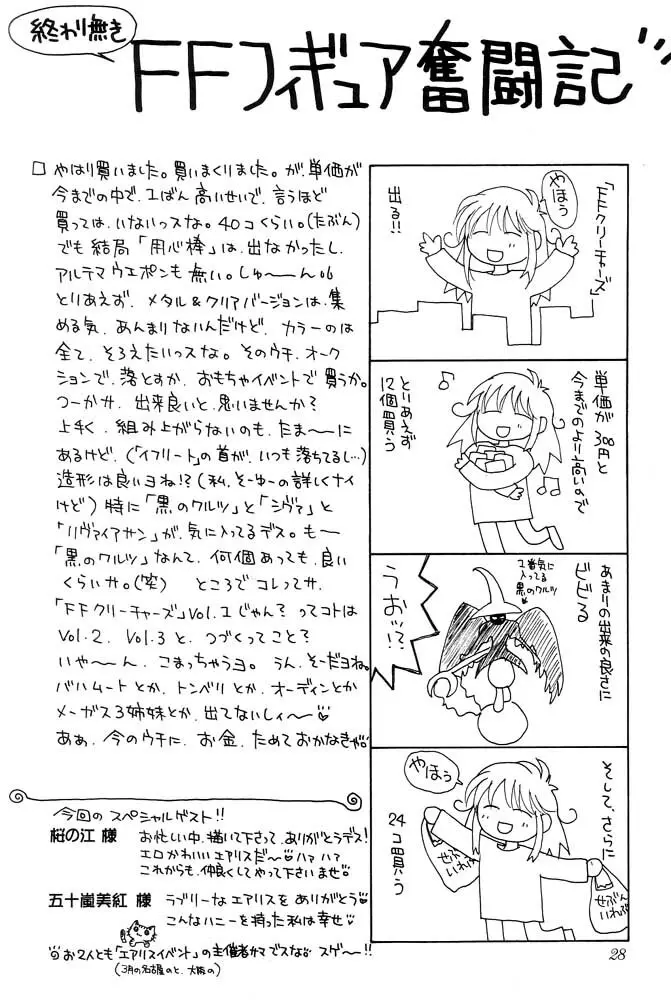 終わり無き
FFフィギュア奮闘記
□ やはり買いました。買いまくりました。が、単価が
今までの中で、1ばん高いせいで、言うほど
買っては、いないっスな。40コくらい。(たぶん)
でも結局「用心棒」は、出なかったし、
アルテマウエポンも無い。しゅ〜〜ん。
とりあえず、メタル&クリアバージョンは、集
める気、あんまりないんだけど、カラーのは
全て、そろえたいっスな。そのウチ、オーク
ションで、落とすか、おもちゃイベントで買うか。
つーかサ、出来良いと、思いませんか?
上手く、組み上がらないのも、たま〜に
あるけど、(「イフリート」の首が、いつも落ちてるし…)
造形は良いヨね!?(私、そーゆーの詳しくナイ
けど)特に「黒のワルツ」と「シヴァ」と
「リヴァイアサン」が、気に入ってるデス。も〜
「黒のワルツ」なんて、何個あっても、良い
くらいサ。(笑) ところでコレってサ、
「FFクリーチャーズ」Vol.1じゃん?ってコトは
Vol.2、Vol.3と、つづくってこと?
いや〜ん、こまっちゃうヨ。うん、そーだヨね。
バハムートとか、トンベリとか、オーディンとか
メーガス3姉妹とか、出てないしィ〜
ああ、今のウチに、お金、ためておかなきゃ
「FFクリーチャーズ」
出る!!
やほう
単価が300円と
今までのより高いので
とりあえず
12個買う
あまりの出来の良さに
ビビる
1番気に
入ってる
黒のワルツ
うおッ!?
そして、さらに
24コ買う
やほう
せぶん
いれぶ
せぶん
いれぶ
今回のスペシャルゲスト!!
桜の江 様
お忙しい中、描いて下さって、ありがとうデス!
エロかわいいエアリスだ〜 ハァハァ
これからも、仲良くしてやって下さいませ
五十嵐美紅 様
ラブリーなエアリスをありがとう
こんなハニーを持った私は幸せ
お2人とも「エアリスイベント」の主催者サマでスな スゲ〜!!
(3月の名古屋のと、大阪の)
28